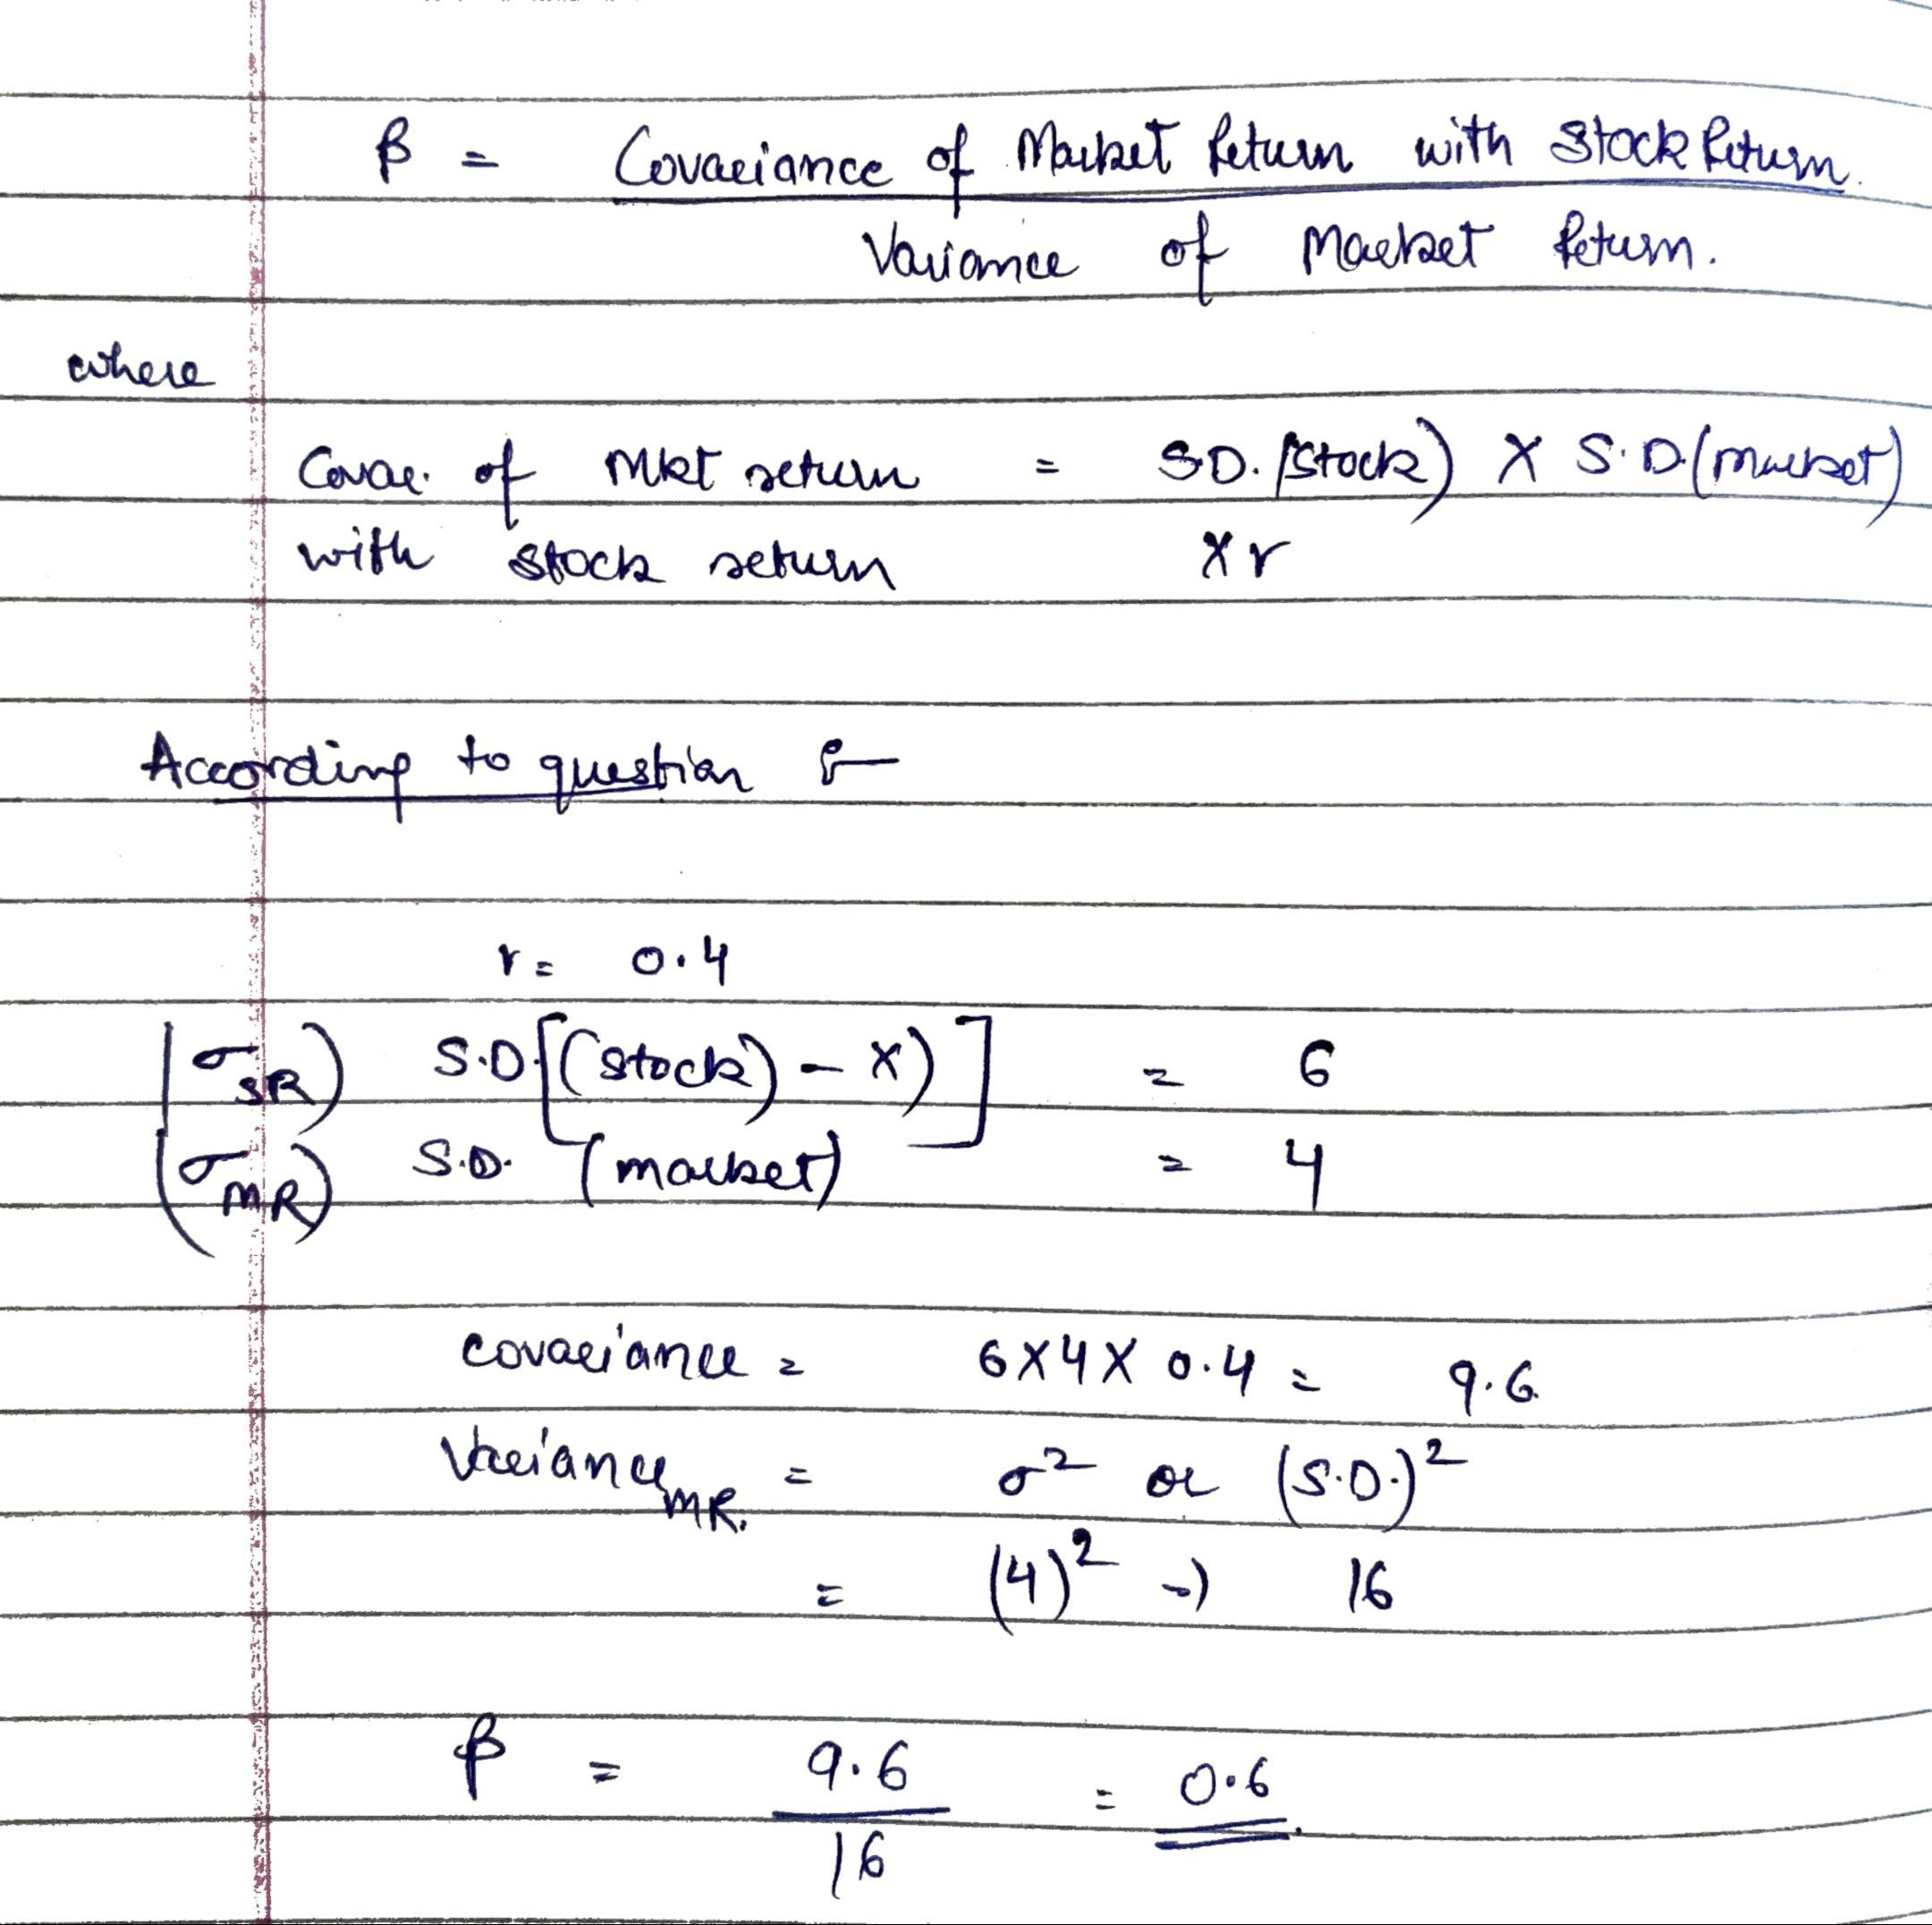 β = Covariance of Market Return with Stock Return.
Variance of Market Return.
where
Covar. of Mkt return = S.D. (Stock) X S.D. (market)
with stock return X r
According to question :-
r = 0.4
(σSR) S.D. [(stock) - X)] = 6
(σMR) S.D. (market) = 4
covariance = 6 X 4 X 0.4 = 9.6
VarianceMR. = σ² or (S.D.)²
= (4)² => 16
β = 9.6 = 0.6.
16